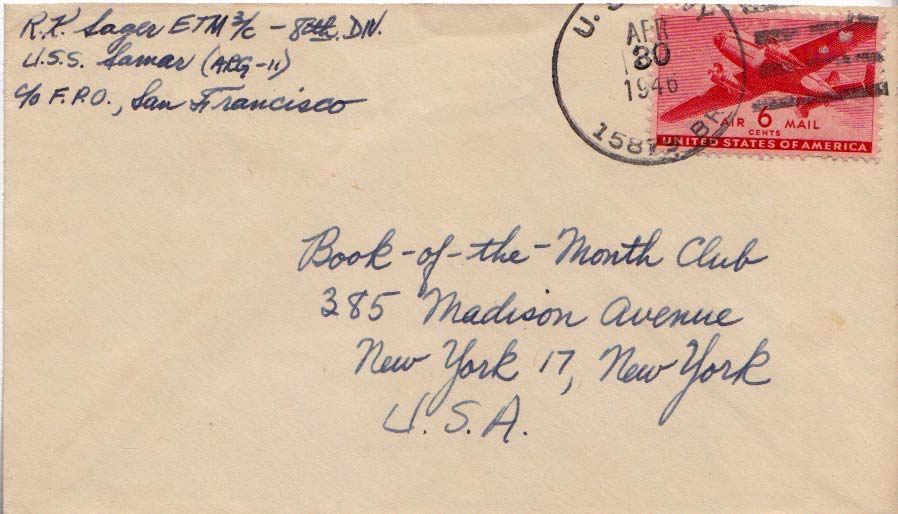 R.K. Sager ETM 3/c - 8th. DIV.
U.S.S. Samar (ARG-11)
c/o F.P.O., San Francisco
APR
30
1946
AIR 6 MAIL
CENTS
UNITED STATES OF AMERICA
Book-of-the-Month Club
385 Madison Avenue
New York 17, New York
U.S.A.